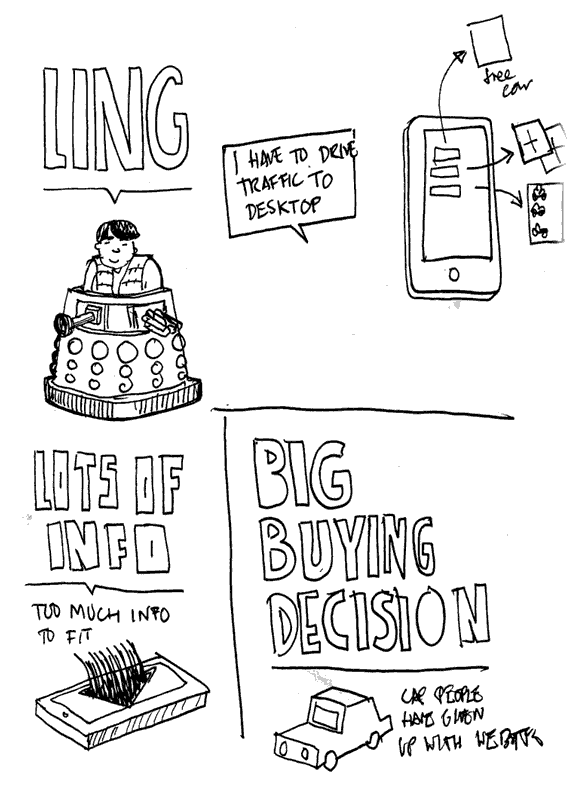 LING
I HAVE TO DRIVE
TRAFFIC TO
DESKTOP
free
LOTS OF
INFO
TOO MUCH INFO
TO FIT
BIG
BUYING
DECISION
CAR PEOPLE
HAVE GIVEN
UP WITH WEBSITES